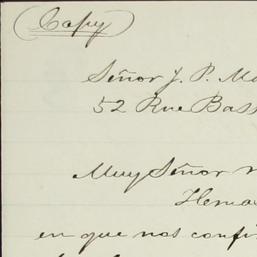 (Copy)
Señor J. P. Mo
52 Rue Bass
Muy Señor
Hemo
en que nos confi